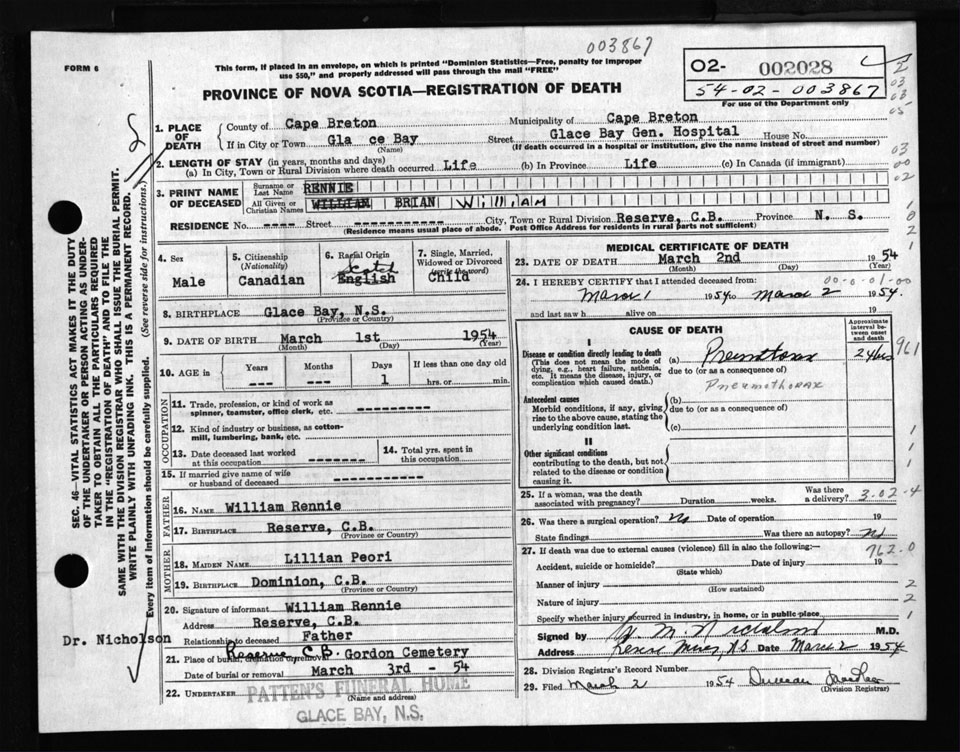 003867
FORM 6
This form, if placed in an envelope, on which is printed "Dominion Statistics—Free, penalty for improper
use $50," and properly addressed will pass through the mail "FREE"
PROVINCE OF NOVA SCOTIA—REGISTRATION OF DEATH
02- 002028
54-02-003867
For use of the Department only
1. PLACE OF DEATH
County of Cape Breton Municipality of Cape Breton
If in City or Town Gla ce Bay Street Glace Bay Gen. Hospital House No.
(Name) (If death occurred in a hospital or institution, give the name instead of street and number)
2. LENGTH OF STAY (in years, months and days)
(a) In City, Town or Rural Division where death occurred Life (b) In Province Life (c) In Canada (if immigrant)
3. PRINT NAME OF DECEASED
Surname or Last Name RENNIE
All Given or Christian Names WILLIAM BRIAN WILLIAM
RESIDENCE No. ---- Street ------------ City, Town or Rural Division Reserve, C.B. Province N. S.
(Residence means usual place of abode. Post Office Address for residents in rural parts not sufficient)
4. Sex
Male
5. Citizenship
(Nationality)
Canadian
6. Racial Origin
Scotch
English
7. Single, Married, Widowed or Divorced
(write the word)
Child
8. BIRTHPLACE Glace Bay, N.S.
(Province or Country)
9. DATE OF BIRTH March 1st 1954
(Month) (Day) (Year)
10. AGE in
Years Months Days If less than one day old
--- --- 1 hrs. or min.
OCCUPATION
11. Trade, profession, or kind of work as
spinner, teamster, office clerk, etc. ----------
12. Kind of industry or business, as cotton-
mill, lumbering, bank, etc. ----------
13. Date deceased last worked
at this occupation ---------
14. Total yrs. spent in
this occupation
15. If married give name of wife
or husband of deceased
FATHER
16. Name William Rennie
17. Birthplace Reserve, C.B.
(Province or Country)
MOTHER
18. Maiden Name Lillian Peori
19. Birthplace Dominion, C.B.
(Province or Country)
20. Signature of informant William Rennie
Address Reserve, C.B.
Relationship to deceased Father
Reserve C.B. Gordon Cemetery
21. Place of burial, cremation or removal
Date of burial or removal March 3rd - 54
22. Undertaker PATTEN'S FUNERAL HOME
(Name and address)
GLACE BAY, N.S.
MEDICAL CERTIFICATE OF DEATH
23. DATE OF DEATH March 2nd 1954
(Month) (Day) (Year)
24. I HEREBY CERTIFY that I attended deceased from: 00-0-01-00
March 1 1954 to March 2 1954
and last saw h alive on 19
CAUSE OF DEATH
Approximate interval between onset and death
I
Disease or condition directly leading to death
(This does not mean the mode of
dying, e.g., heart failure, asthenia,
etc. It means the disease, injury, or
complication which caused death.)
(a) 24 hrs 961
due to (or as a consequence of)
Pneumothorax
Antecedent causes
Morbid conditions, if any, giving
rise to the above cause, stating the
underlying condition last.
(b)
due to (or as a consequence of)
(c)
II
Other significant conditions
contributing to the death, but not
related to the disease or condition
causing it.
25. If a woman, was the death
associated with pregnancy? Duration weeks. Was there a delivery? 3-02-4
26. Was there a surgical operation? No Date of operation 19
State findings Was there an autopsy? No
27. If death was due to external causes (violence) fill in also the following:— 762.0
Accident, suicide or homicide? Date of injury 19
(State which)
Manner of injury
(How sustained)
Nature of injury
Specify whether injury occurred in industry, in home, or in public place
Signed by M. Nicholson M.D.
Address Reserve Mines, N.S. Date March 2 1954
28. Division Registrar's Record Number
29. Filed March 2 1954 Duncan
(Division Registrar)
Dr. Nicholson
SEC. 46—VITAL STATISTICS ACT MAKES IT THE DUTY
OF THE UNDERTAKER OR PERSON ACTING AS UNDER-
TAKER TO OBTAIN ALL THE PARTICULARS REQUIRED
IN THE "REGISTRATION OF DEATH" AND TO FILE THE
SAME WITH THE DIVISION REGISTRAR WHO SHALL ISSUE THE BURIAL PERMIT.
WRITE PLAINLY WITH UNFADING INK. THIS IS A PERMANENT RECORD.
Every item of information should be carefully supplied. (See reverse side for instructions.)